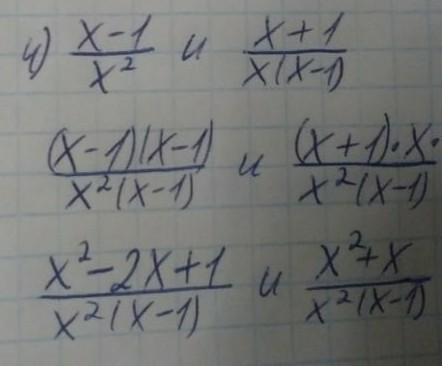 ч) (x-1)/x² и (x+1)/(x(x-1))
((x-1)(x-1))/(x²(x-1)) и ((x+1)·x·)/(x²(x-1))
(x²-2x+1)/(x²(x-1)) и (x²+x)/(x²(x-1))